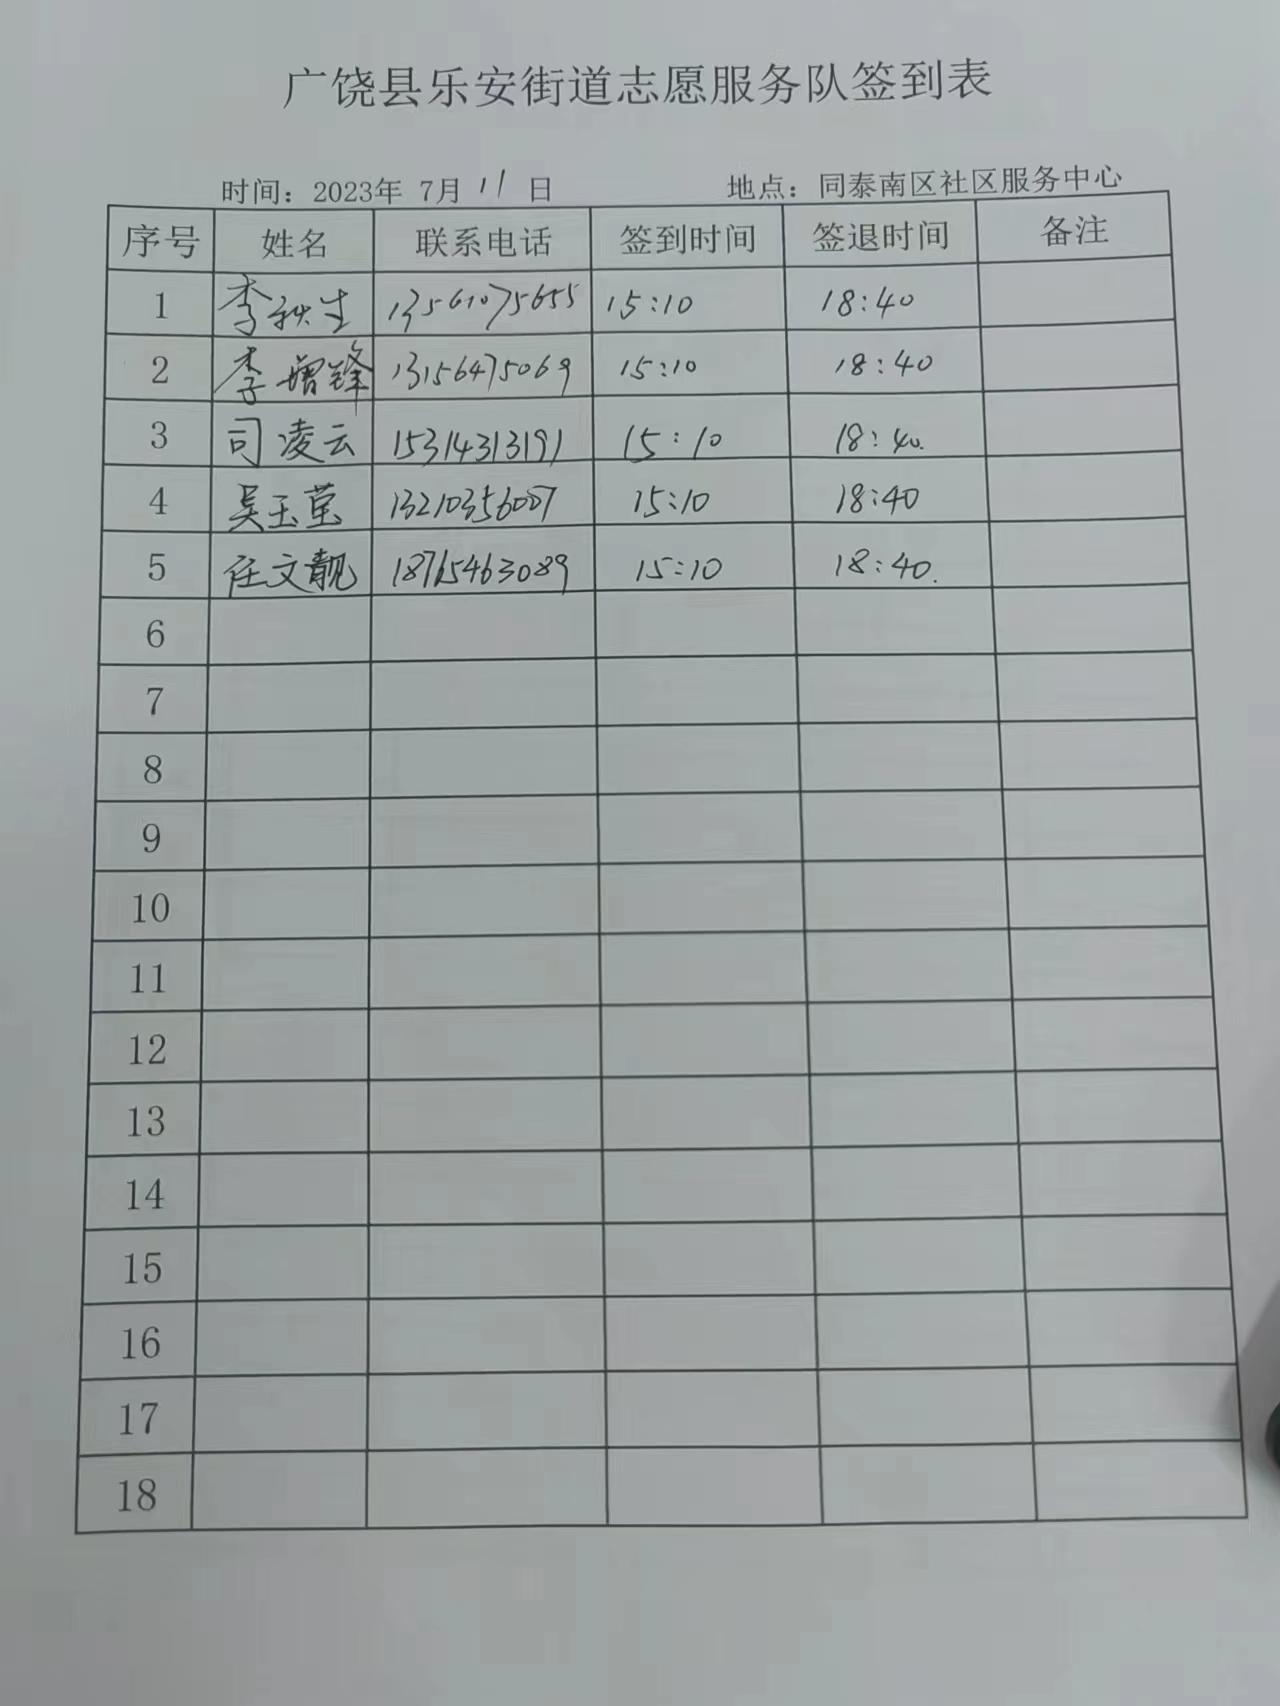 广饶县乐安街道志愿服务队签到表
时间：2023年 7月 11 日 地点：同泰南区社区服务中心
序号 姓名 联系电话 签到时间 签退时间 备注
1 李秋生 13561075655 15:10 18:40
2 李增锋 13156475069 15:10 18:40
3 司凌云 15314313191 15:10 18:40.
4 吴玉莹 13210356007 15:10 18:40
5 任文靓 18765463089 15:10 18:40.
6
7
8
9
10
11
12
13
14
15
16
17
18